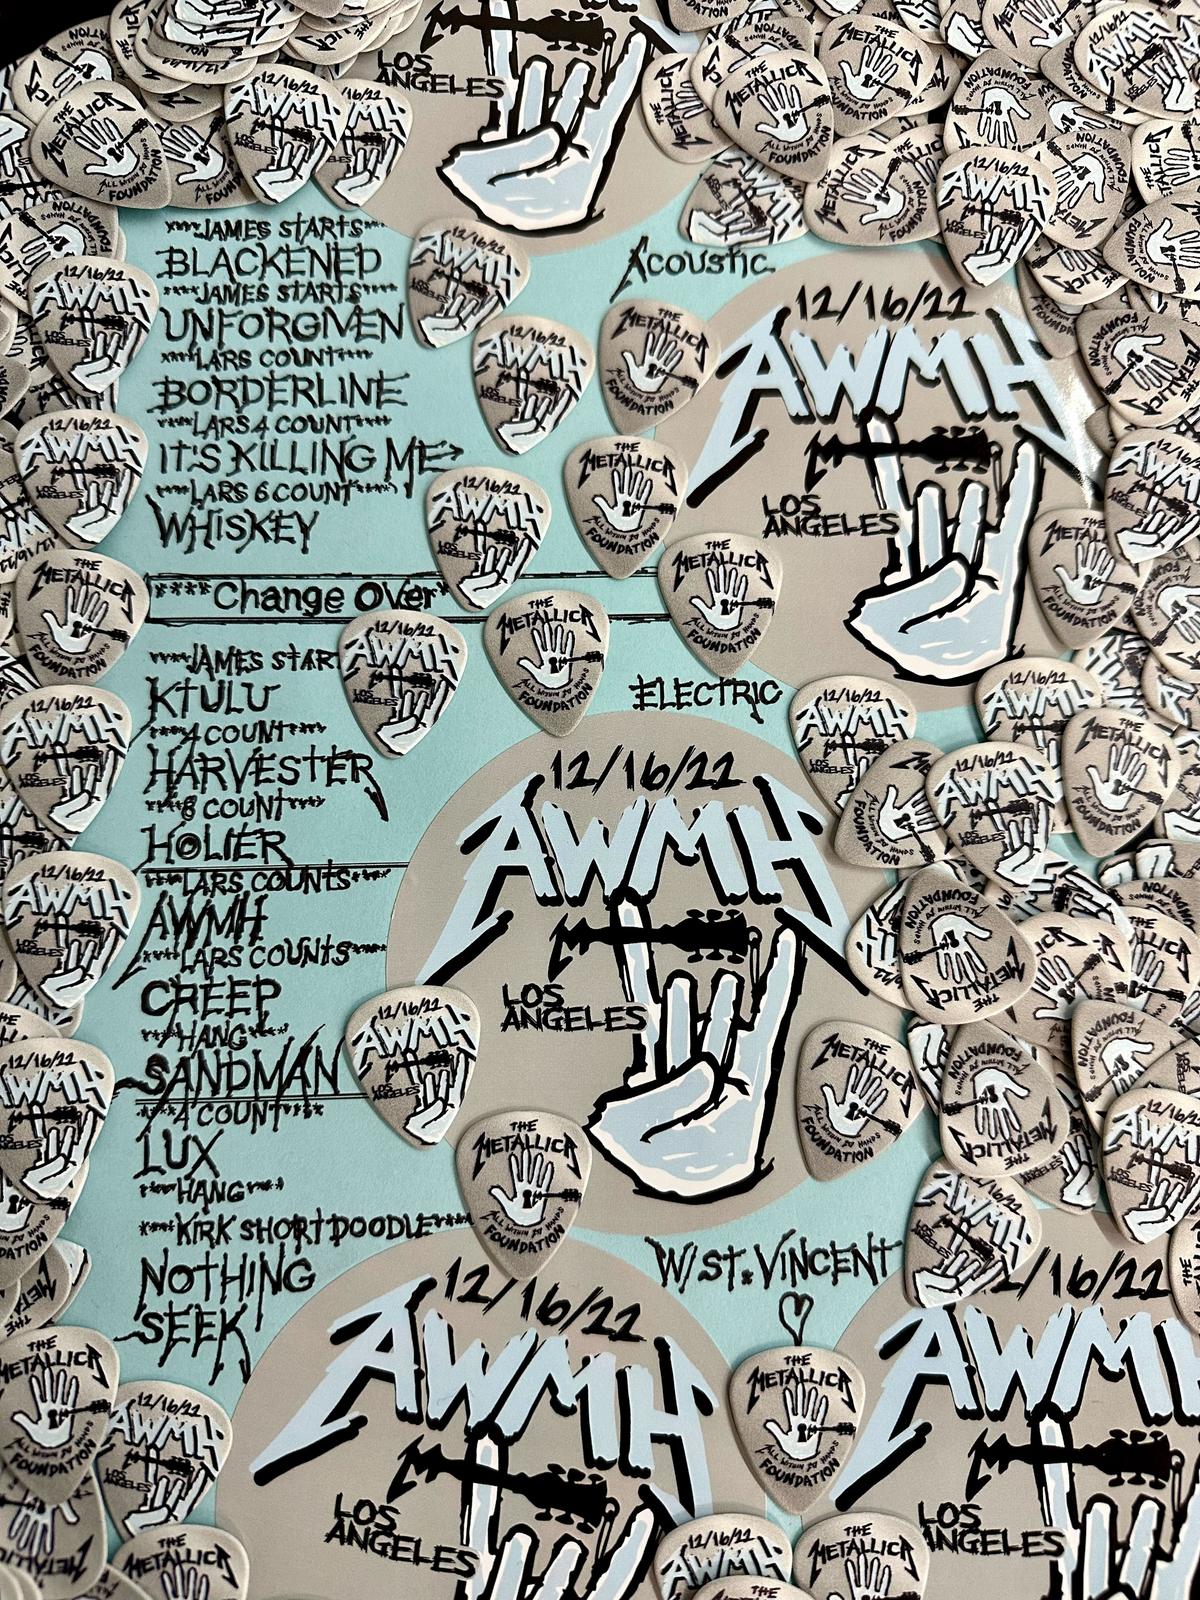 LOS
ANGELES
****JAMES STARTS****
BLACKENED
****JAMES STARTS****
UNFORGIVEN
****LARS COUNT****
BORDERLINE
****LARS 4 COUNT****
IT'S KILLING ME
****LARS 6 COUNT****
WHISKEY
ACOUSTIC
12/16/22
AWMH
LOS
ANGELES
****Change Over*
****JAMES START
KTULU
****4 COUNT****
HARVESTER
****8 COUNT****
HOLIER
****LARS COUNTS****
AWMH
****LARS COUNTS****
CREEP
****HANG****
SANDMAN
****4 COUNT****
LUX
****HANG****
****KIRK SHORT DOODLE****
NOTHING
SEEK
ELECTRIC
12/16/22
AWMH
LOS
ANGELES
W/ST. VINCENT
12/16/22
AWMH
LOS
ANGELES
2/16/22
AWM
LOS
ANGELES
12/16/22
AWMH
LOS
ANGELES
THE
METALLICA
ALL WITHIN MY HANDS
FOUNDATION